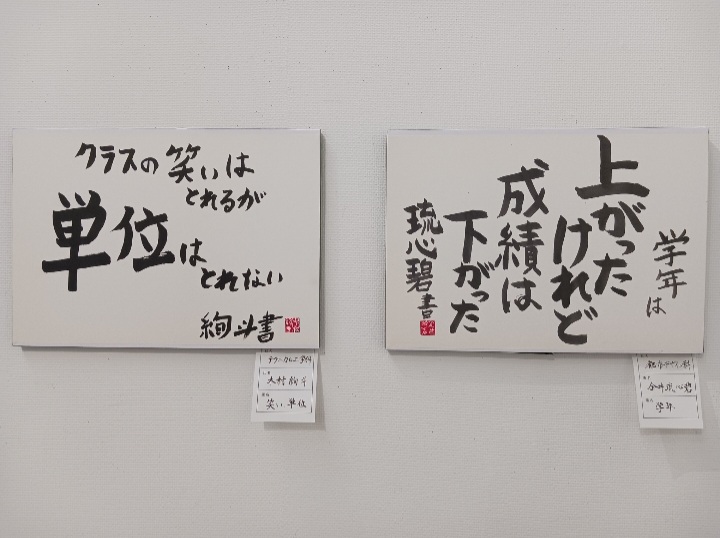 クラスの笑いは
とれるが
単位は
とれない
絢斗書
笑い 単位
学年は
上がった
けれど
成績は
下がった
琉心碧書
学年